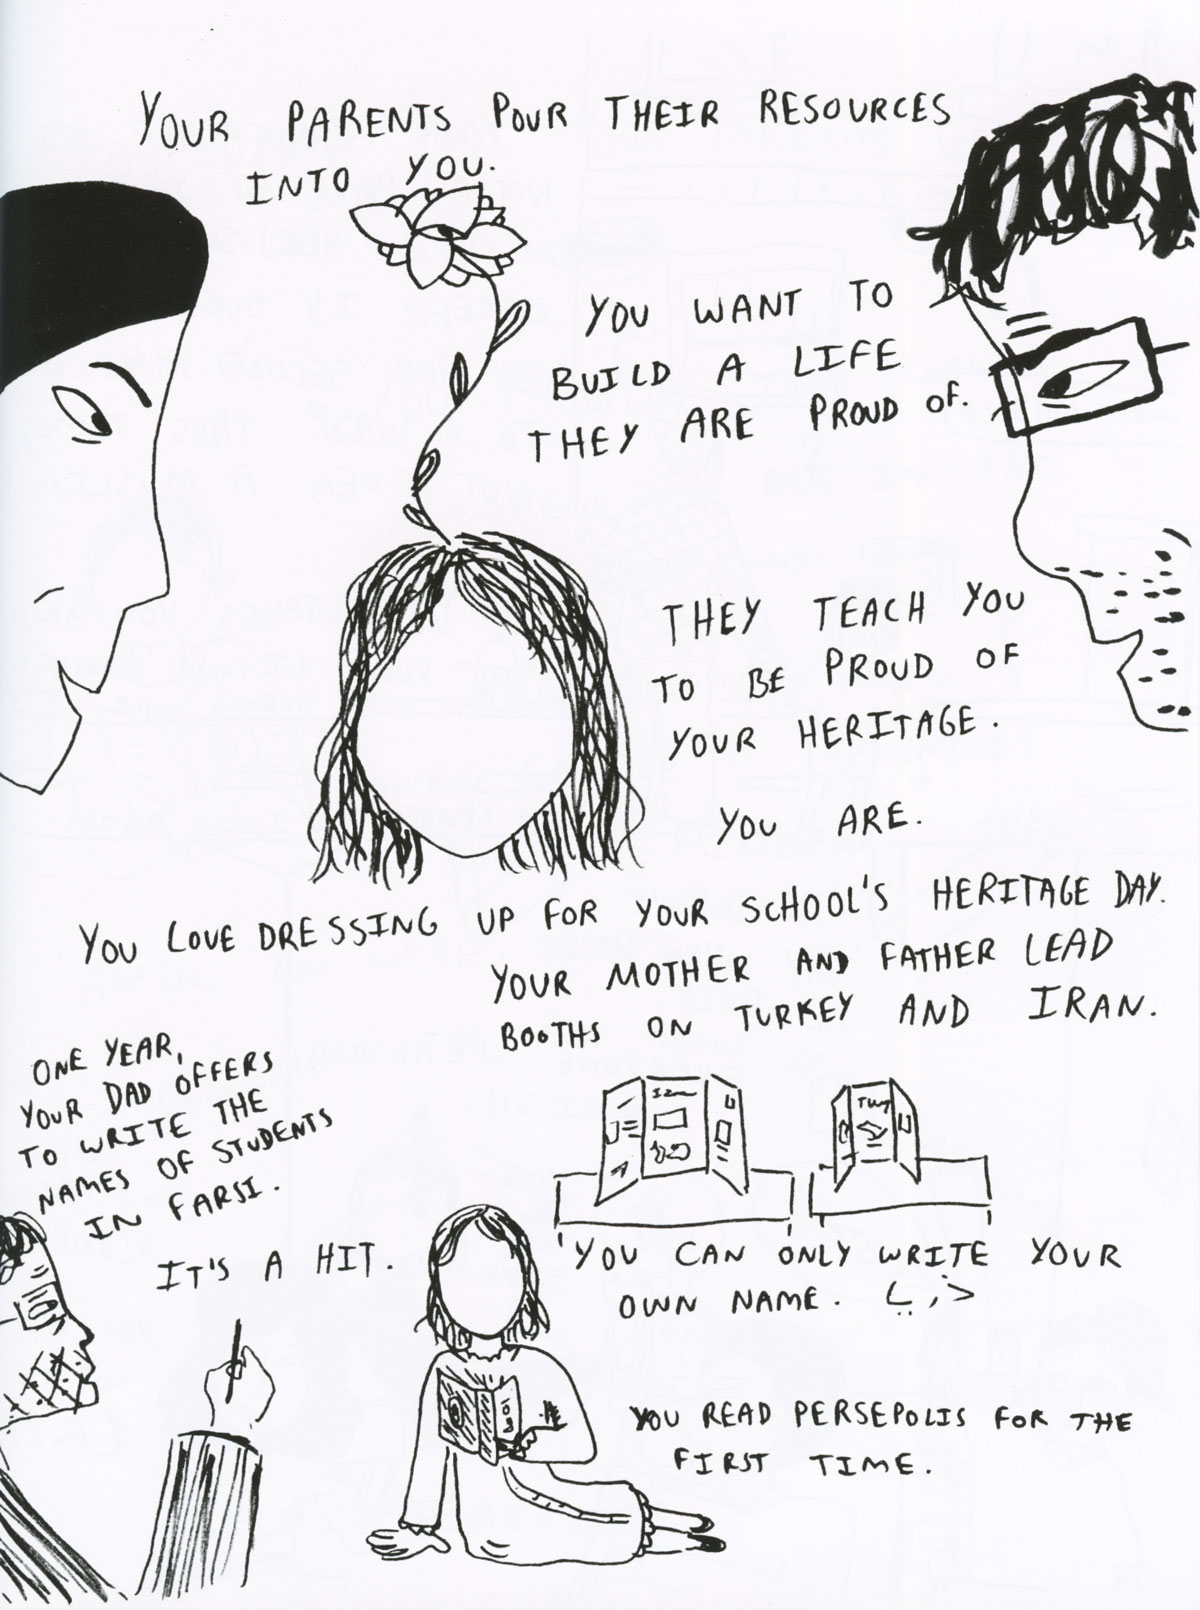 YOUR PARENTS POUR THEIR RESOURCES
INTO YOU.
YOU WANT TO
BUILD A LIFE
THEY ARE PROUD OF.
THEY TEACH YOU
TO BE PROUD OF
YOUR HERITAGE.
YOU ARE.
YOU LOVE DRESSING UP FOR YOUR SCHOOL'S HERITAGE DAY.
YOUR MOTHER AND FATHER LEAD
BOOTHS ON TURKEY AND IRAN.
ONE YEAR,
YOUR DAD OFFERS
TO WRITE THE
NAMES OF STUDENTS
IN FARSI.
IT'S A HIT.
YOU CAN ONLY WRITE YOUR
OWN NAME.
YOU READ PERSEPOLIS FOR THE
FIRST TIME.